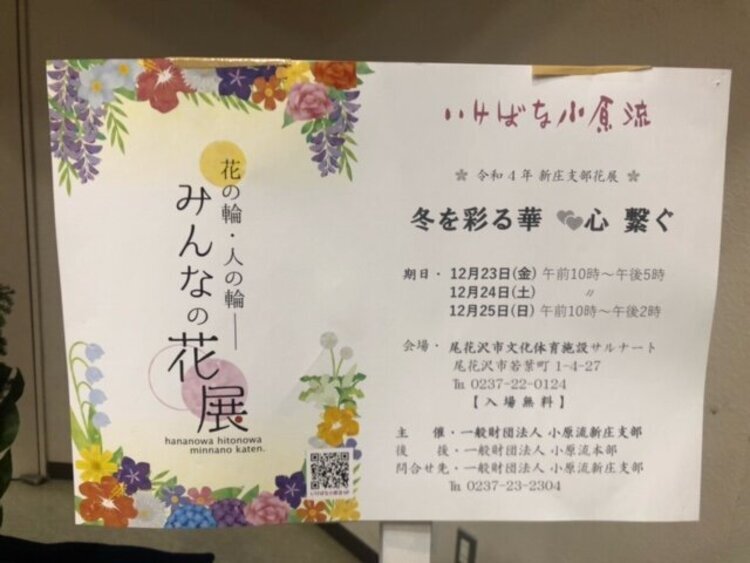 花の輪・人の輪――
みんなの花展
hananowa hitonowa
minnano katen.
いけばな小原流
令和4年 新庄支部花展
冬を彩る華 心 繋ぐ
期日・ 12月23日(金) 午前10時～午後5時
12月24日(土) 〃
12月25日(日) 午前10時～午後2時
会場・ 尾花沢市文化体育施設サルナート
尾花沢市若葉町 1-4-27
℡ 0237-22-0124
【入場無料】
主 催・一般財団法人 小原流新庄支部
後 援・一般財団法人 小原流本部
問合せ先・一般財団法人 小原流新庄支部
℡ 0237-23-2304